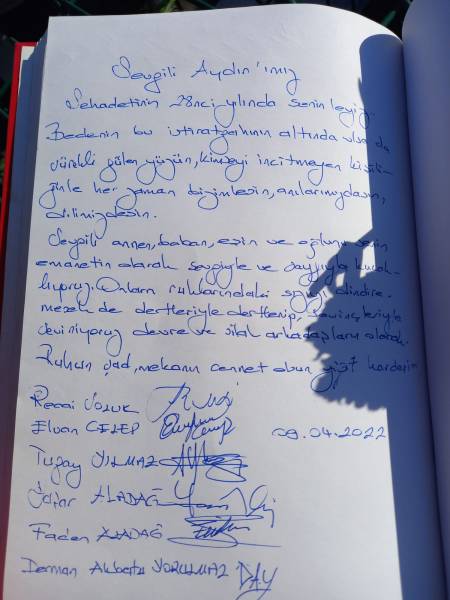 Sevgili Aydın'ımız
Şehadetinin 28nci yılında seninleyiz.
Bedenin bu istiratgahının altında olsa da
sürekli gülen yüzün, kimseyi incitmeyen kişili-
ğinle her zaman bizimlesin, anılarımızdasın,
dilimizdesin.
Sevgili annen, baban, eşin ve oğlunu senin
emanetin olarak sevgiyle ve saygıyla kucak-
lıyoruz. Onların ruhlarındaki sızıyı dindire-
mesek de dertleriyle dertlenip, sevinçleriyle
seviniyoruz devre ve silah arkadaşların olarak.
Ruhun şad, mekanın cennet olsun yiğit kardeşim
Recai
Elvan
09.04.2022
Tugay YILMAZ
ALADAĞ
ALADAĞ
Derman YORULMAZ